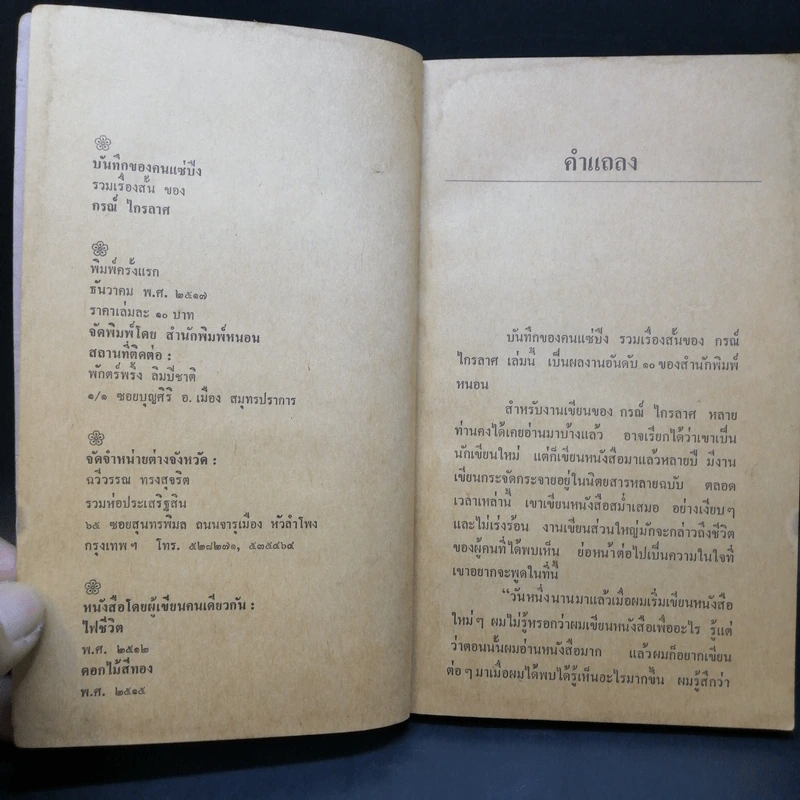 บันทึกของคนแซ่บึง
รวมเรื่องสั้น ของ
กรณ์ ไกรลาศ
พิมพ์ครั้งแรก
ธันวาคม พ.ศ. ๒๕๑๗
ราคาเล่มละ ๑๐ บาท
จัดพิมพ์โดย สำนักพิมพ์หนอน
สถานที่ติดต่อ :
พักตร์พริ้ง ลิมปิชาติ
๑/๑ ซอยบุญศิริ อ. เมือง สมุทรปราการ
จัดจำหน่ายต่างจังหวัด :
ฉวีวรรณ ทรงสุจริต
รวมห่อประเสริฐสิน
๖๕ ซอยสุนทรพิมล ถนนจารุเมือง หัวลำโพง
กรุงเทพฯ โทร. ๕๒๘๒๗๑, ๕๓๕๔๖๔
หนังสือโดยผู้เขียนคนเดียวกัน :
ไฟชีวิต
พ.ศ. ๒๕๑๒
ดอกไม้สีทอง
พ.ศ. ๒๕๑๕
คำแถลง
บันทึกของคนแซ่บึง รวมเรื่องสั้นของ กรณ์
ไกรลาศ เล่มนี้ เป็นผลงานอันดับ ๑๐ ของสำนักพิมพ์
หนอน
สำหรับงานเขียนของ กรณ์ ไกรลาศ หลาย
ท่านคงได้เคยอ่านมาบ้างแล้ว อาจเรียกได้ว่าเขาเป็น
นักเขียนใหม่ แต่ก็เขียนหนังสือมาแล้วหลายปี มีงาน
เขียนกระจัดกระจายอยู่ในนิตยสารหลายฉบับ ตลอด
เวลาเหล่านี้ เขาเขียนหนังสือสม่ำเสมอ อย่างเงียบๆ
และไม่เร่งร้อน งานเขียนส่วนใหญ่มักจะกล่าวถึงชีวิต
ของผู้คนที่ได้พบเห็น ย่อหน้าต่อไปเป็นความในใจที่
เขาอยากจะพูดในที่นี้
“วันหนึ่งนานมาแล้วเมื่อผมเริ่มเขียนหนังสือ
ใหม่ๆ ผมไม่รู้หรอกว่าผมเขียนหนังสือเพื่ออะไร รู้แต่
ว่าตอนนั้นผมอ่านหนังสือมาก แล้วผมก็อยากเขียน
ต่อๆ มาเมื่อผมได้พบได้รู้เห็นอะไรมากขึ้น ผมรู้สึกว่า